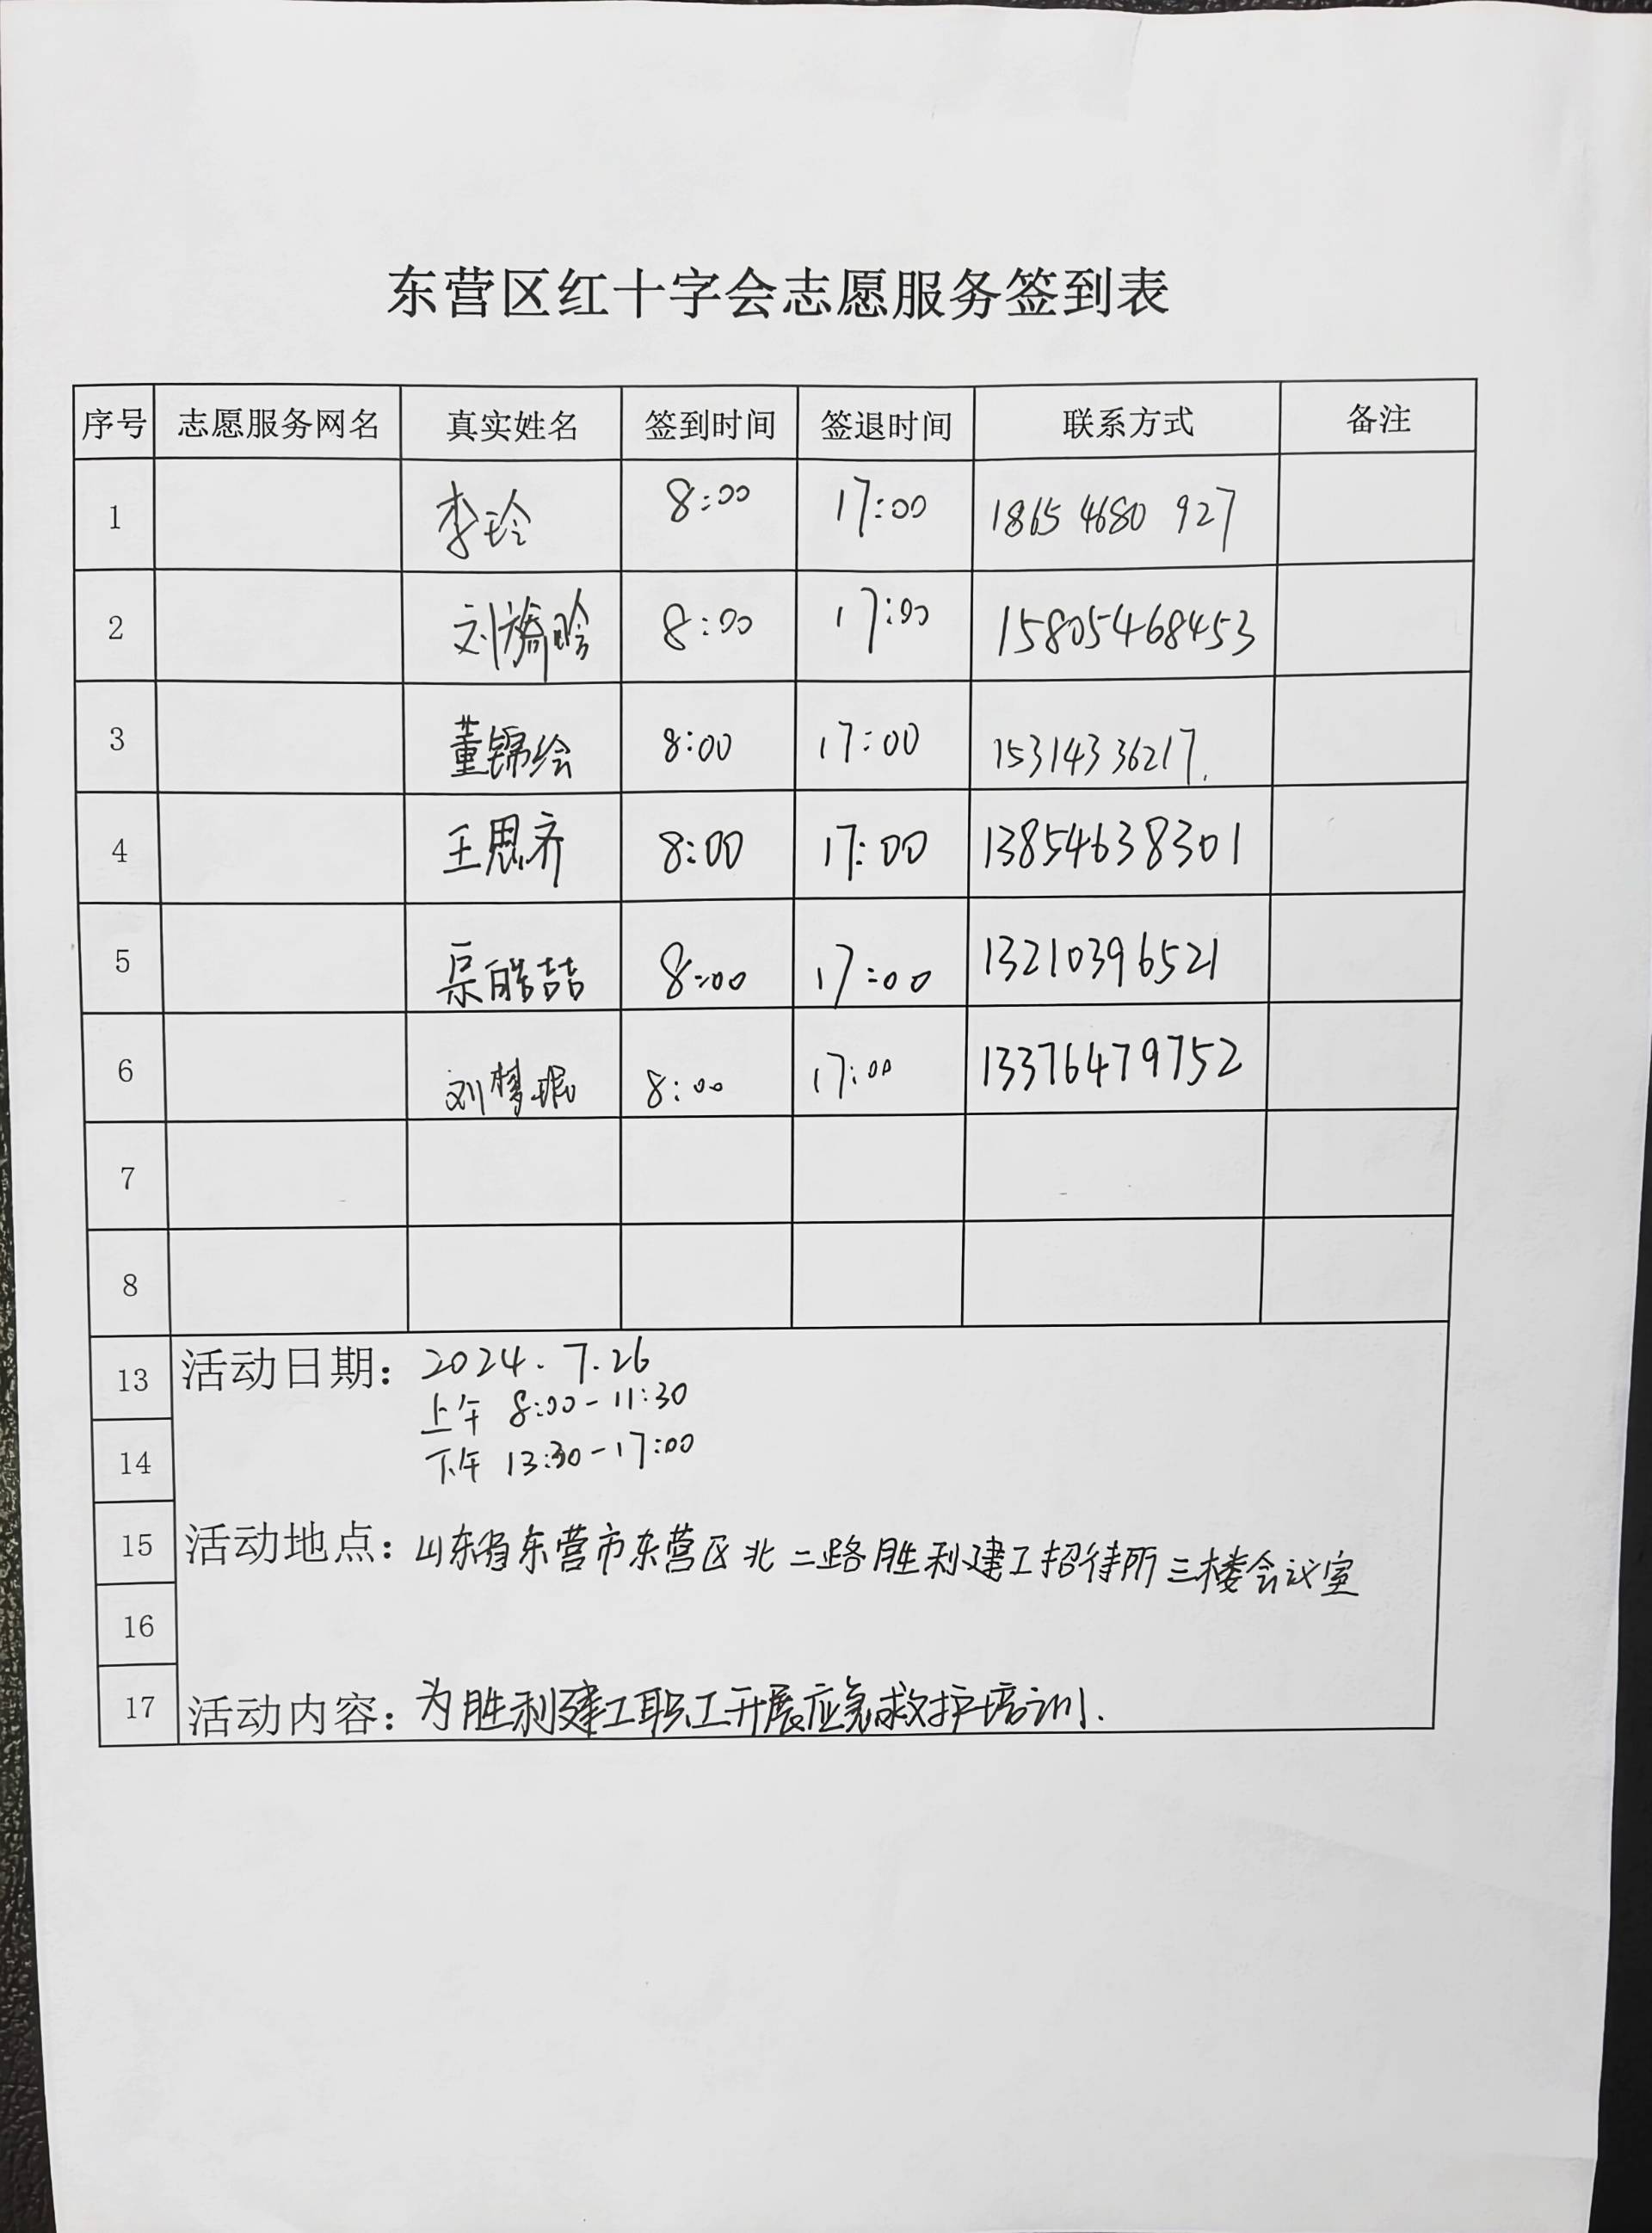 东营区红十字会志愿服务签到表
序号 志愿服务网名 真实姓名 签到时间 签退时间 联系方式 备注
1 李玲 8:00 17:00 1865 4680 927
2 刘 8:00 17:00 15805468453
3 董锦绘 8:00 17:00 15314336217.
4 王思齐 8:00 17:00 13854638301
5 皓喆 8:00 17:00 13210396521
6 刘梦珉 8:00 17:00 13376479752
7
8
13 活动日期：2024.7.26
上午 8:00-11:30
14 下午 13:30-17:00
15 活动地点：山东省东营市东营区北二路胜利建工招待所三楼会议室
16
17 活动内容：为胜利建工职工开展应急救护培训.